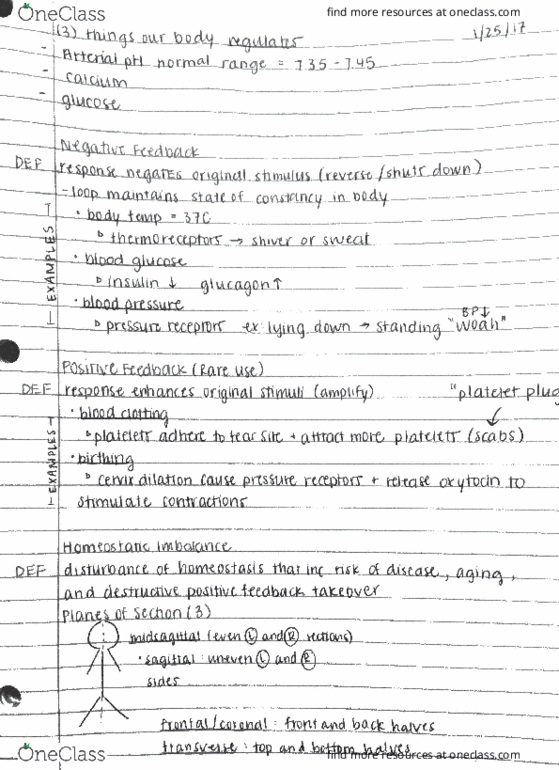 OneClass
find more resources at oneclass.com
(3) things our body regulates 1/25/17
- Arterial pH normal range = 7.35 - 7.45
- calcium
- glucose
Negative Feedback
DEF response negates original stimulus (reverse/shuts down)
- loop maintains state of constancy in body
— EXAMPLES —
• body temp = 37C
▹ thermoreceptors → shiver or sweat
• blood glucose
▹ insulin ↓ glucagon ↑
• blood pressure
BP↓
▹ pressure receptors ex lying down → standing "woah"
Positive Feedback (Rare use)
DEF response enhances original stimuli (amplify) "platelet plug
— EXAMPLES —
• blood clotting
▹ platelets adhere to tear site + attract more platelets (scabs)
• birthing
▹ cervix dilation cause pressure receptors + release oxytocin to
stimulate contractions
Homeostatic Imbalance
DEF disturbance of homeostasis that inc risk of disease, aging,
and destructive positive feedback takeover
Planes of Section (3)
midsagittal (even Ⓛ and Ⓡ sections)
• sagittal: uneven Ⓛ and Ⓡ
sides
frontal/coronal: front and back halves
transverse: top and bottom halves
OneClass
find more resources at oneclass.com